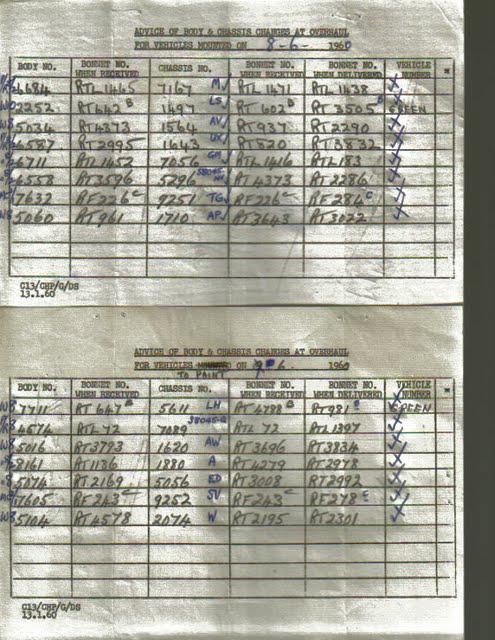 ADVICE OF BODY & CHASSIS CHANGES AT OVERHAUL
FOR VEHICLES MOUNTED ON 8-6- 1960
BODY NO. BONNET NO. WHEN RECEIVED CHASSIS NO. BONNET NO. WHEN RECEIVED BONNET NO. WHEN DELIVERED VEHICLE NUMBER
RTL 1465 7167 M RTL 1471 RTL 1438
2252 RT 442 B 1497 LS RT 602 B RT 3505 B GREEN
5034 RT4373 1564 AV RT937 RT2290
6587 RT 2995 1643 UX RT820 RT3832
6711 RTL 1452 7056 GM RTL 1416 RTL183
6558 RT3596 5296 RT4373 RT2286
7632 RF226 C 9251 TG RF226 C RF284 C
5060 RT961 1710 AP RT3643 RT3022
C13/CHP/G/DS
13.1.60
ADVICE OF BODY & CHASSIS CHANGES AT OVERHAUL
FOR VEHICLES ON 9-6- 1960
TO PAINT
BODY NO. BONNET NO. WHEN RECEIVED CHASSIS NO. BONNET NO. WHEN RECEIVED BONNET NO. WHEN DELIVERED VEHICLE NUMBER
7711 RT 647 B 5611 LH RT4788 B RT981 B GREEN
4574 RTL 72 7089 RTL 72 RTL1397
5016 RT3793 1620 AW RT3696 RT3834
8161 RT1136 1880 A RT4279 RT2978
5074 RT2169 5056 ED RT3008 RT2992
7605 RF243 C 9252 SV RF243 C RF278 C
5104 RT4578 2074 W RT2195 RT2301
C13/CHP/G/DS
13.1.60